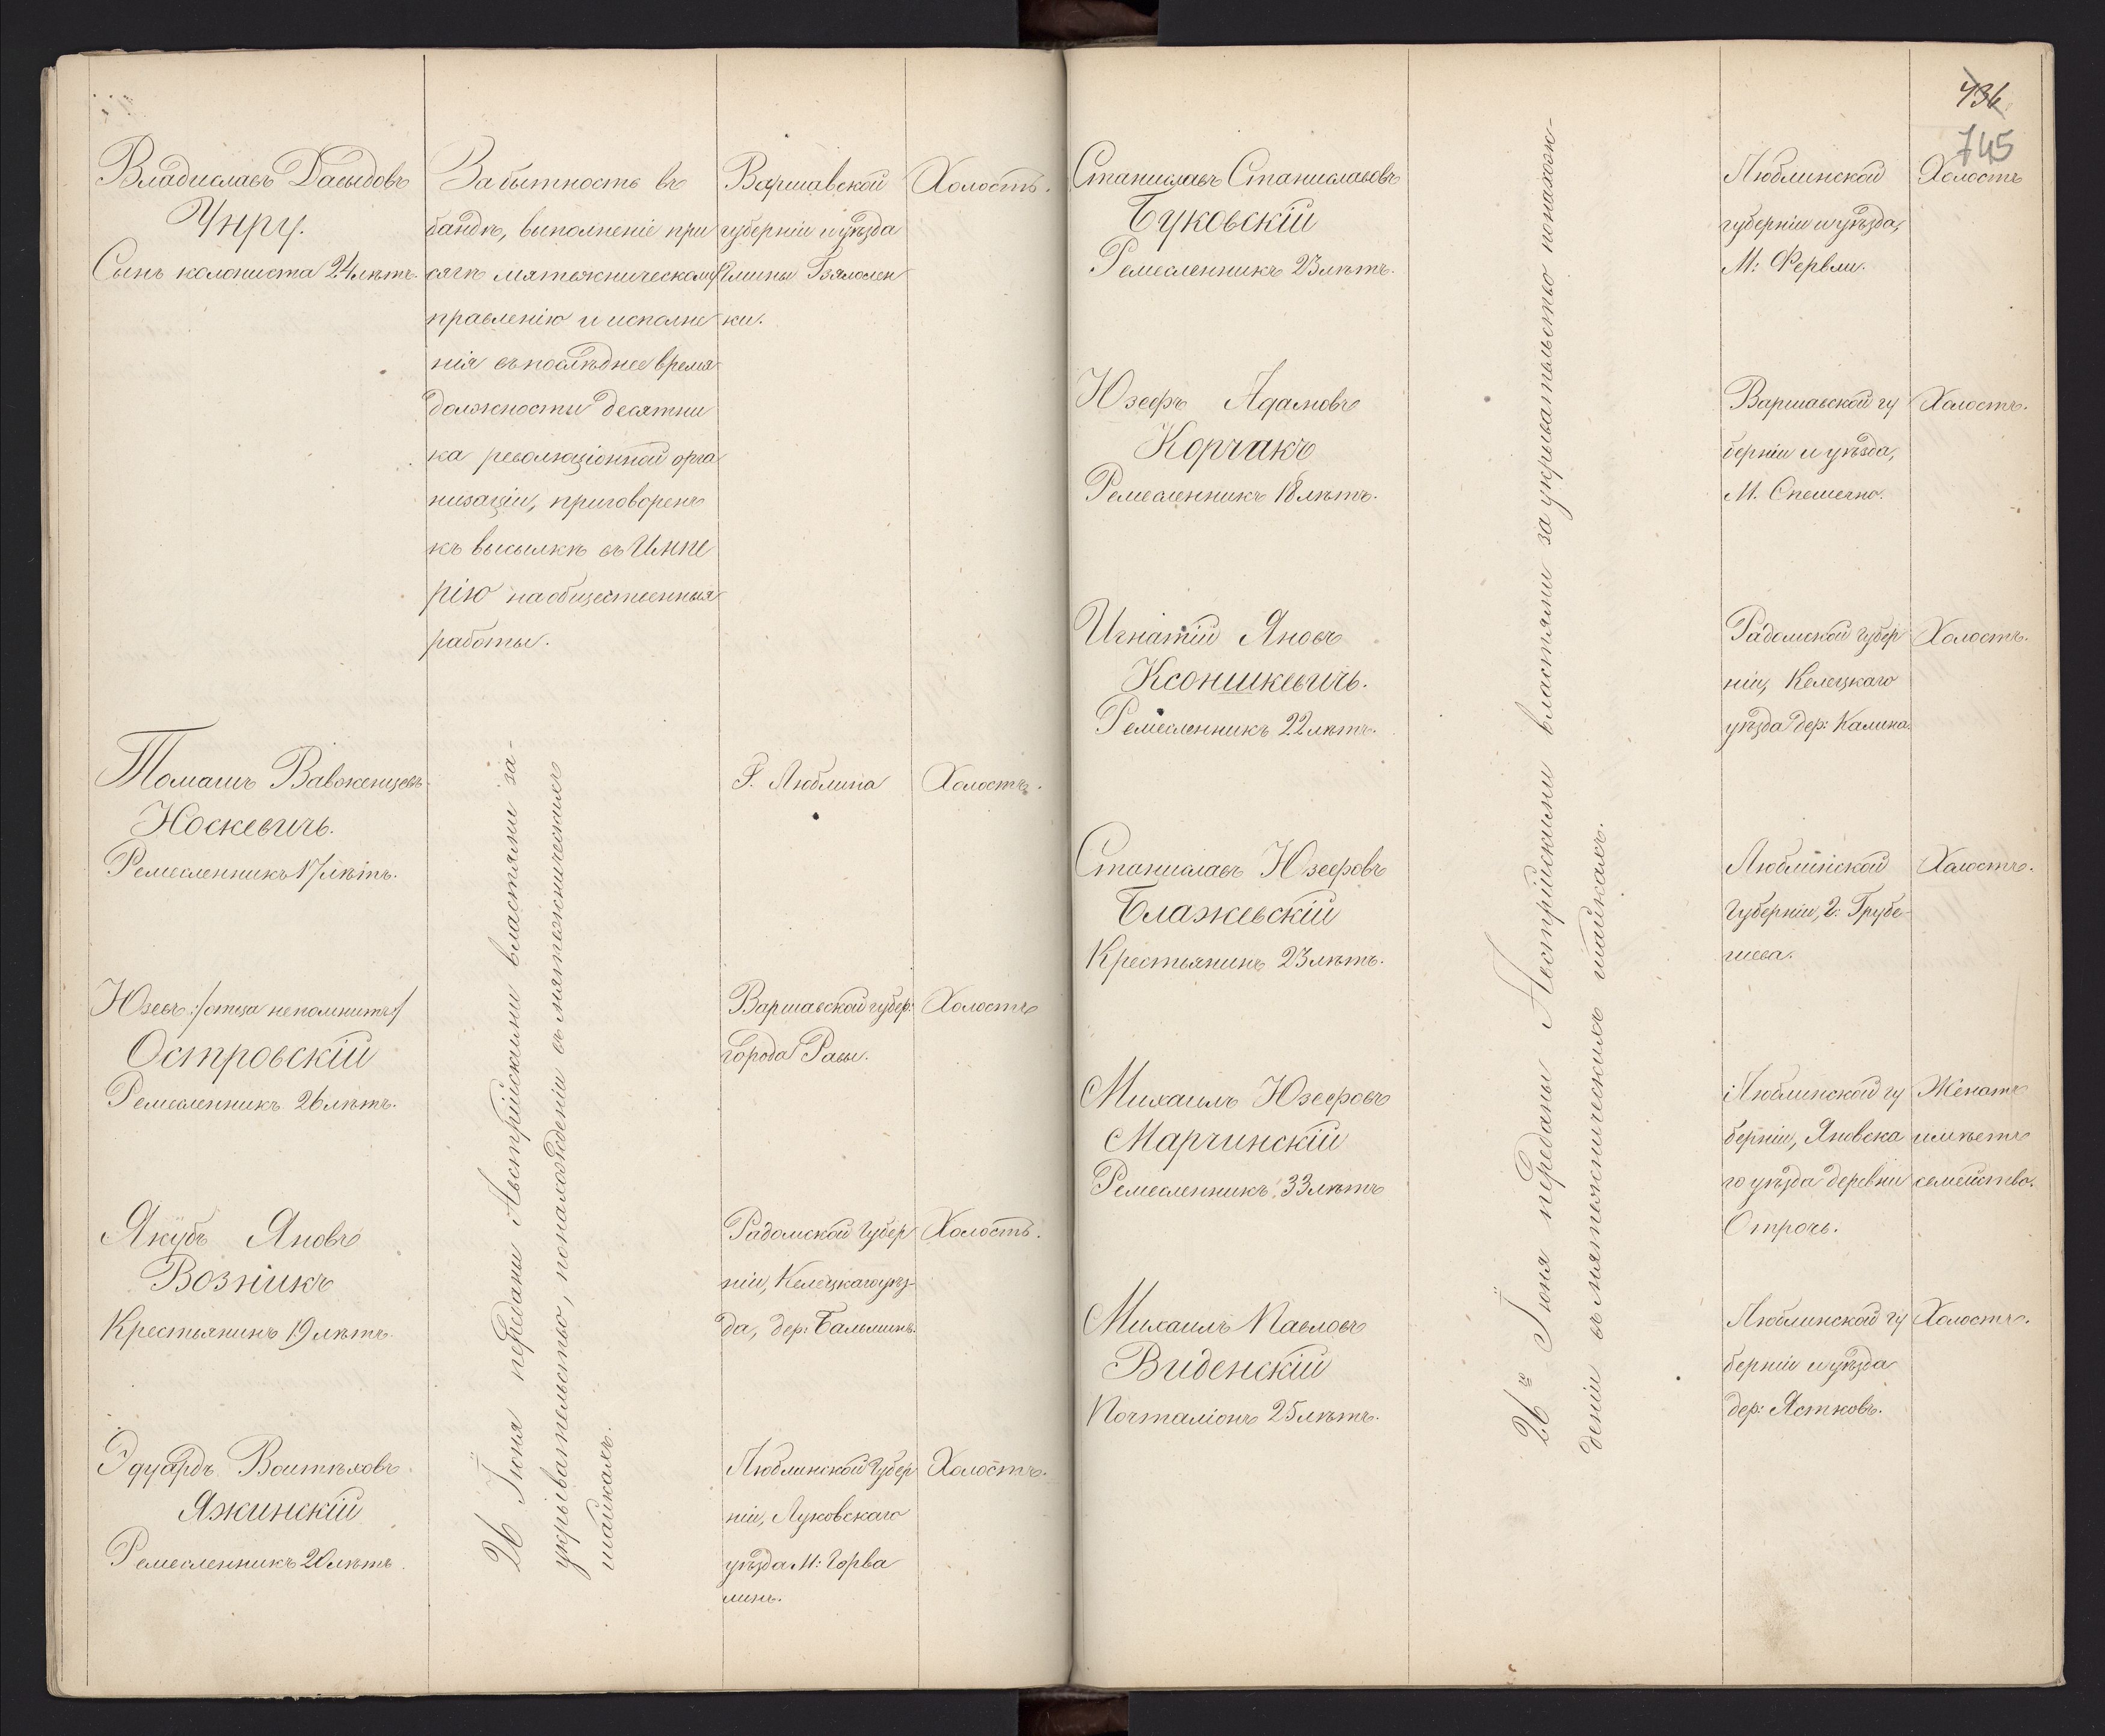 Владиславъ Давыдовъ
Унру.
Сынъ колониста 24 лѣтъ.
За бытность въ
бандѣ, выполненіе при
сягѣ мятежническому
правленію и исполне
нія въ последнее время
должности десятни
ка революціонной орга
низаціи, приговоренъ
къ высылкѣ въ Импе
рію на общественныя
работы.
Варшавской
губерніи и уѣзда
Гмины Бялолен
ки.
Холостъ.
Томашъ Вавженцевъ
Носкевичъ.
Ремесленникъ 17 лѣтъ.
Г. Люблина
Холостъ.
Юзевъ :/отца непомнитъ/
Островскій
Ремесленникъ 26 лѣтъ.
Варшавской губер:
города Равы.
Холостъ
Якубъ Яновъ
Возникъ
Крестьянинъ 19 лѣтъ.
Радомской Губер
ніи, Келецкаго уѣз-
да, дер:
Холостъ.
Эдуардъ Войтѣховъ
Яжинскій
Ремесленникъ 20 лѣтъ.
Люблинской Губер
ніи, Луковскаго
уѣзда М: Горва
линъ.
Холостъ.
26 Іюня переданы Австрійскими властями за-
укрывательство, понахожденіи въ мятежническихъ
шайкахъ.
436
745
Станиславъ Станиславовъ
Буковскій
Ремесленникъ 23 лѣтъ.
Люблинской
губерніи и уѣзда,
М:
Холостъ
Юзефъ Адамовъ
Корчакъ
Ремесленникъ 18 лѣтъ.
Варшавской гу
берніи и уѣзда,
М.
Холостъ.
Игнатій Яновъ
Ксоншкевичъ.
Ремесленникъ 22 лѣтъ.
Радомской Губер
ніи, Келецкаго
уѣзда дер: Калина.
Холостъ.
Станиславъ Юзефовъ
Блажевскій
Крестьянинъ 23 лѣтъ.
Люблинской
Губерніи, г: Грубе-
шева.
Холостъ.
Михаилъ Юзефовъ
Марчинскій
Ремесленникъ 33 лѣтъ
Люблинской гу
берніи, Яновска
го уѣзда деревни
Отрочь.
Женатъ
имѣетъ
семейство.
Михаилъ Павловъ
Виденскій
Почталіонъ 25 лѣтъ.
Люблинской гу
берніи и уѣзда
дер: Ястковъ.
Холостъ.
26го Іюня переданы Австрійскими властями за укрывательство понахож-
деніи въ мятежническихъ шайкахъ.